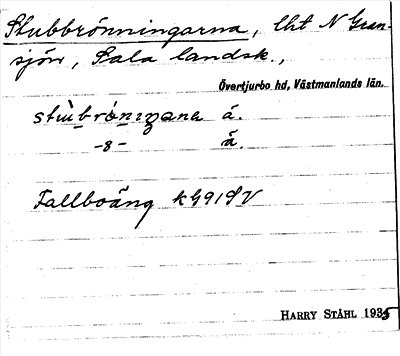 Stubbrönningarna, lht N Gran-
sjön, Sala landsk.,
Övertjurbo hd, Västmanlands län.
stùbrö́niŋana å.
-8- å̄.
Fallboäng k G 91 SV
HARRY STÅHL 1935